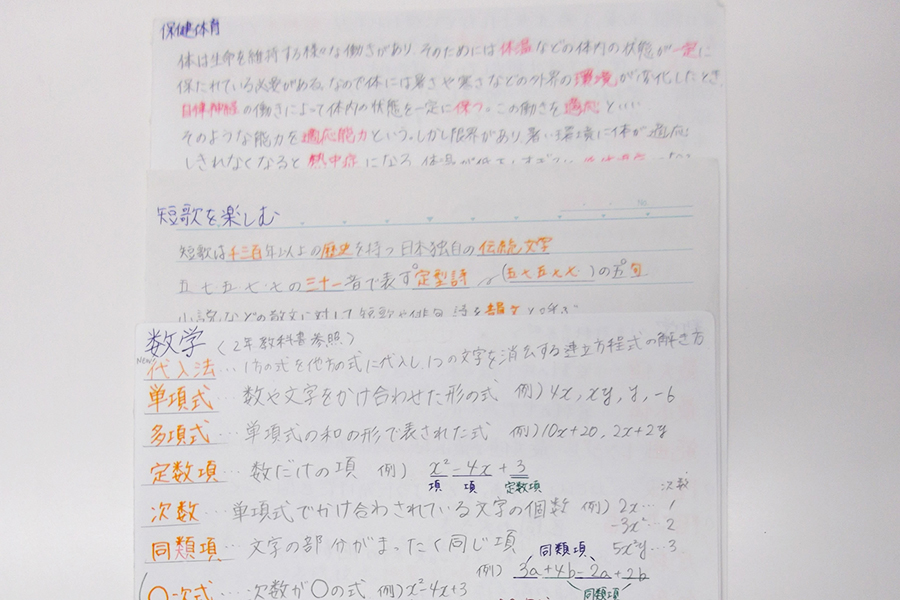 保健体育
体は生命を維持する様々な働きがあり、そのためには体温などの体内の状態が一定に
保たれている必要がある。なので体には暑さや寒さなどの外界の環境が変化したとき
自律神経の働きによって体内の状態を一定に保つ。この働きを適応といい
そのような能力を適応能力という。しかし限界があり、暑い環境に体が適応
しきれなくなると熱中症になる。体温が
短歌を楽しむ
短歌は千三百年以上の歴史を持つ日本独自の伝統文学
五・七・五・七・七の三十一音で表す定型詩 (五七五七七)の五句
小説などの散文に対して短歌や俳句、詩を韻文と呼ぶ
数学 (2年教科書参照)
NEW!
代入法…1方の式を他方の式に代入し、1つの文字を消去する連立方程式の解き方
単項式…数や文字をかけ合わせた形の式 例)4x, xy, y, -6
多項式…単項式の和の形で表された式 例)10x+20, 2x+2y
定数項…数だけの項 例) x²-4x+3
項 項 定数項
次数
次数…単項式でかけ合わされている文字の個数 例)2x…1
-3x²…2
同類項…文字の部分がまったく同じ項 5x²y…3
同類項
例) 3a+4b-2a+2b
同類項
〇次式…次数が〇の式 例)x²-4x+3